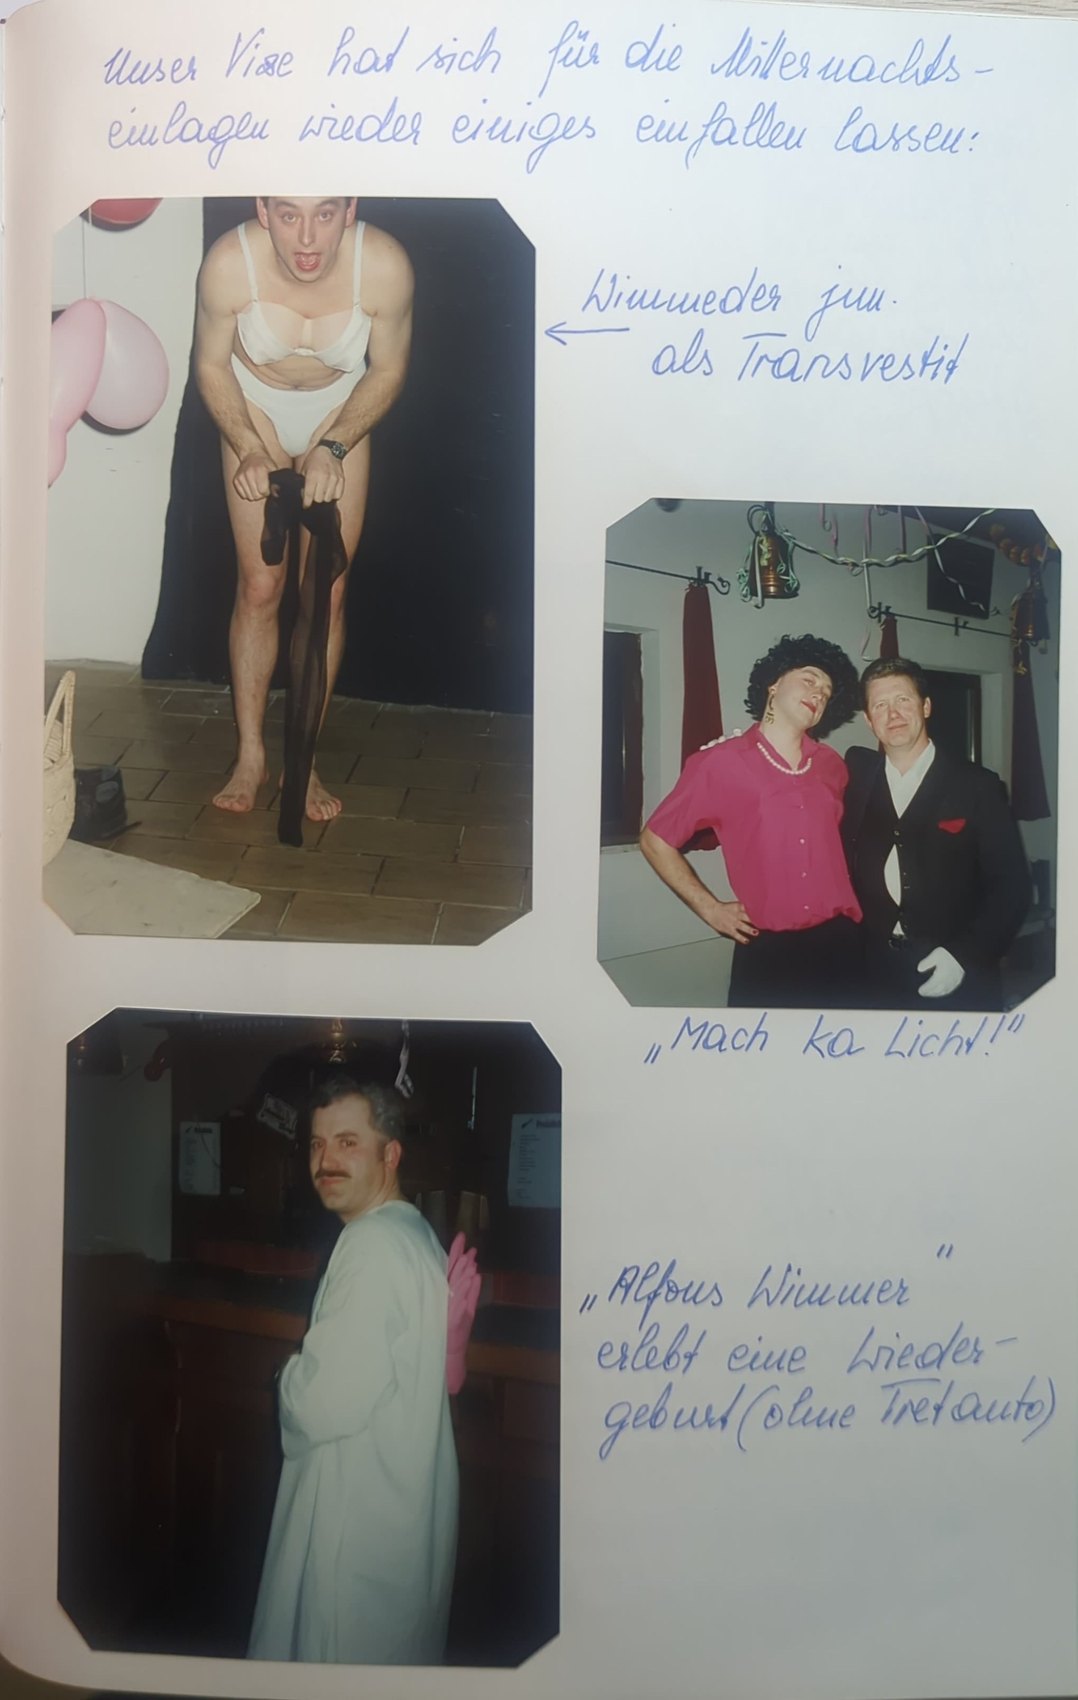 Unser Vize hat sich für die Mitternachts-
einlagen wieder einiges einfallen lassen:
Wimmeder jun.
als Transvestit
„Mach ka Licht!"
„Alfons Wimmer"
erlebt eine Wieder-
geburt (ohne Tretauto)